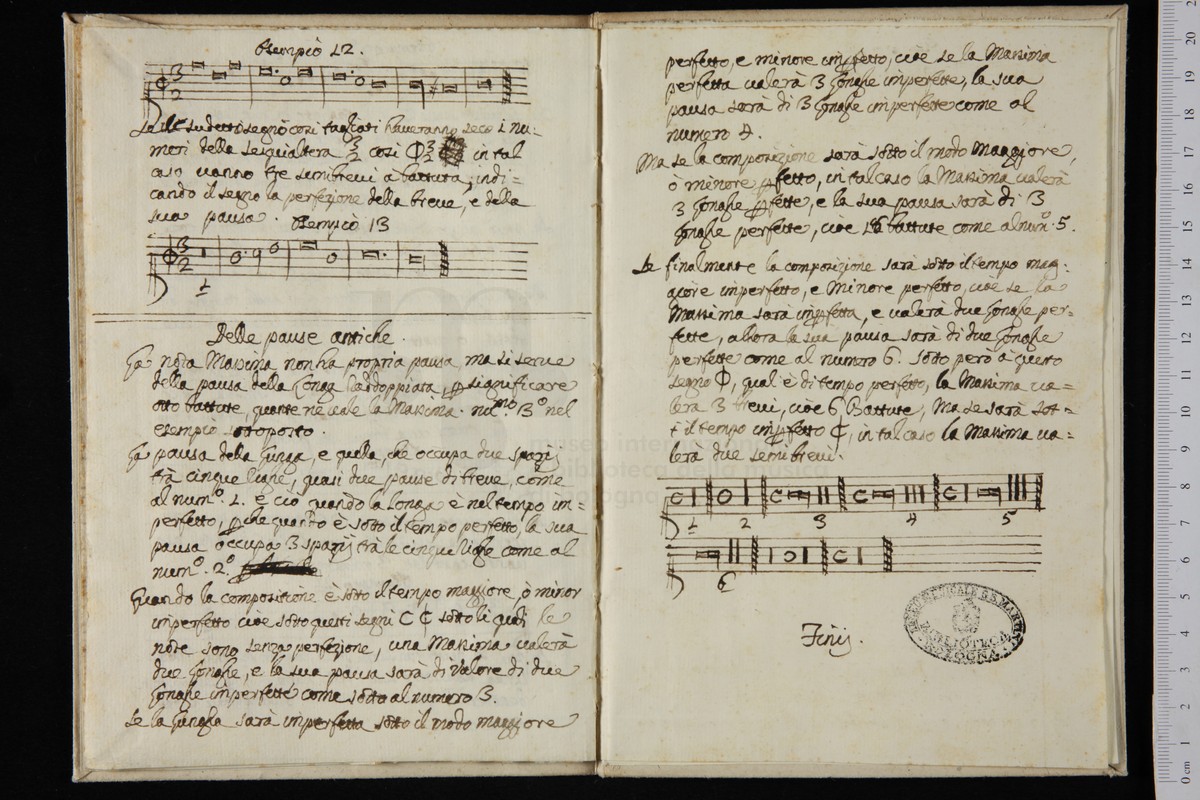 Esempio 12.
Se li sudetti segni così tagliati haveranno seco i nu:
meri della sesquialtera 3/2 così Φ3/2 in tal
caso vanno tre semibrevi a battuta, indi=
cando il segno la perfezione della breve, e della
sua pausa. Esempio 13
1
Delle pause antiche.
La nota Massima non ha propria pausa, ma si serve
della pausa della Longa raddoppiata p significare
otto battute, quante ne vale la Massima. nuᵐᵒ 3º nel
esempio sottoposto.
La pausa della Longa, e quella, che occupa due spazij
trà cinque linee, quasi due pause di breve, come
al numº. 1. e ciò quando la Longa è nel tempo im=
perfetto, pche quando è sotto il tempo perfetto, la sua
pausa occupa 3 spazij trà le cinque lighe come al
numº. 2º.
Quando la compositione è sotto il tempo maggiore, ò minor
imperfetto cioè sotto questi segni C ₵ sotto li quali le
note sono senza perfezione, una Massima valerà
due Longhe, e la sua pausa sarà di valore di due
Longhe imperfette come sotto al numero 3.
Se la Lungha sarà imperfetta sotto il modo maggiore
perfetto, e minore impfetto, cioè se la Massima
perfetta valerà 3 Longhe imperfette, la sua
pausa sarà di 3 Longhe imperfette come al
numero 4.
Ma se la composizione sarà sotto il modo Maggiore,
ò minore pfetto, in tal caso la Massima valerà
3 Longhe pfette, e la sua pausa sarà di 3
Longhe perfette, cioè battute come al numº. 5.
Se finalmente la composizione sarà sotto il tempo mag:
giore imperfetto, e Minore perfetto, cioè se la
Massima sarà impfetta, e valerà due Longhe per=
fette, allora la sua pausa sarà di due Longhe
perfette come al numero 6. sotto però a questo
segno Φ, qual'è di tempo perfetto, la Massima va=
lerà 3 brevi, cioè 6 Battute, Ma se sarà sot=
t'il tempo impfetto ₵, in tal caso la Massima va=
lerà due semibrevi.
1 2 3 4 5
6
Finis.
museo internazionale
e biblioteca della musica
di bologna
LICEO MUSICALE G.B. MARTINI
BIBLIOTECA
BOLOGNA